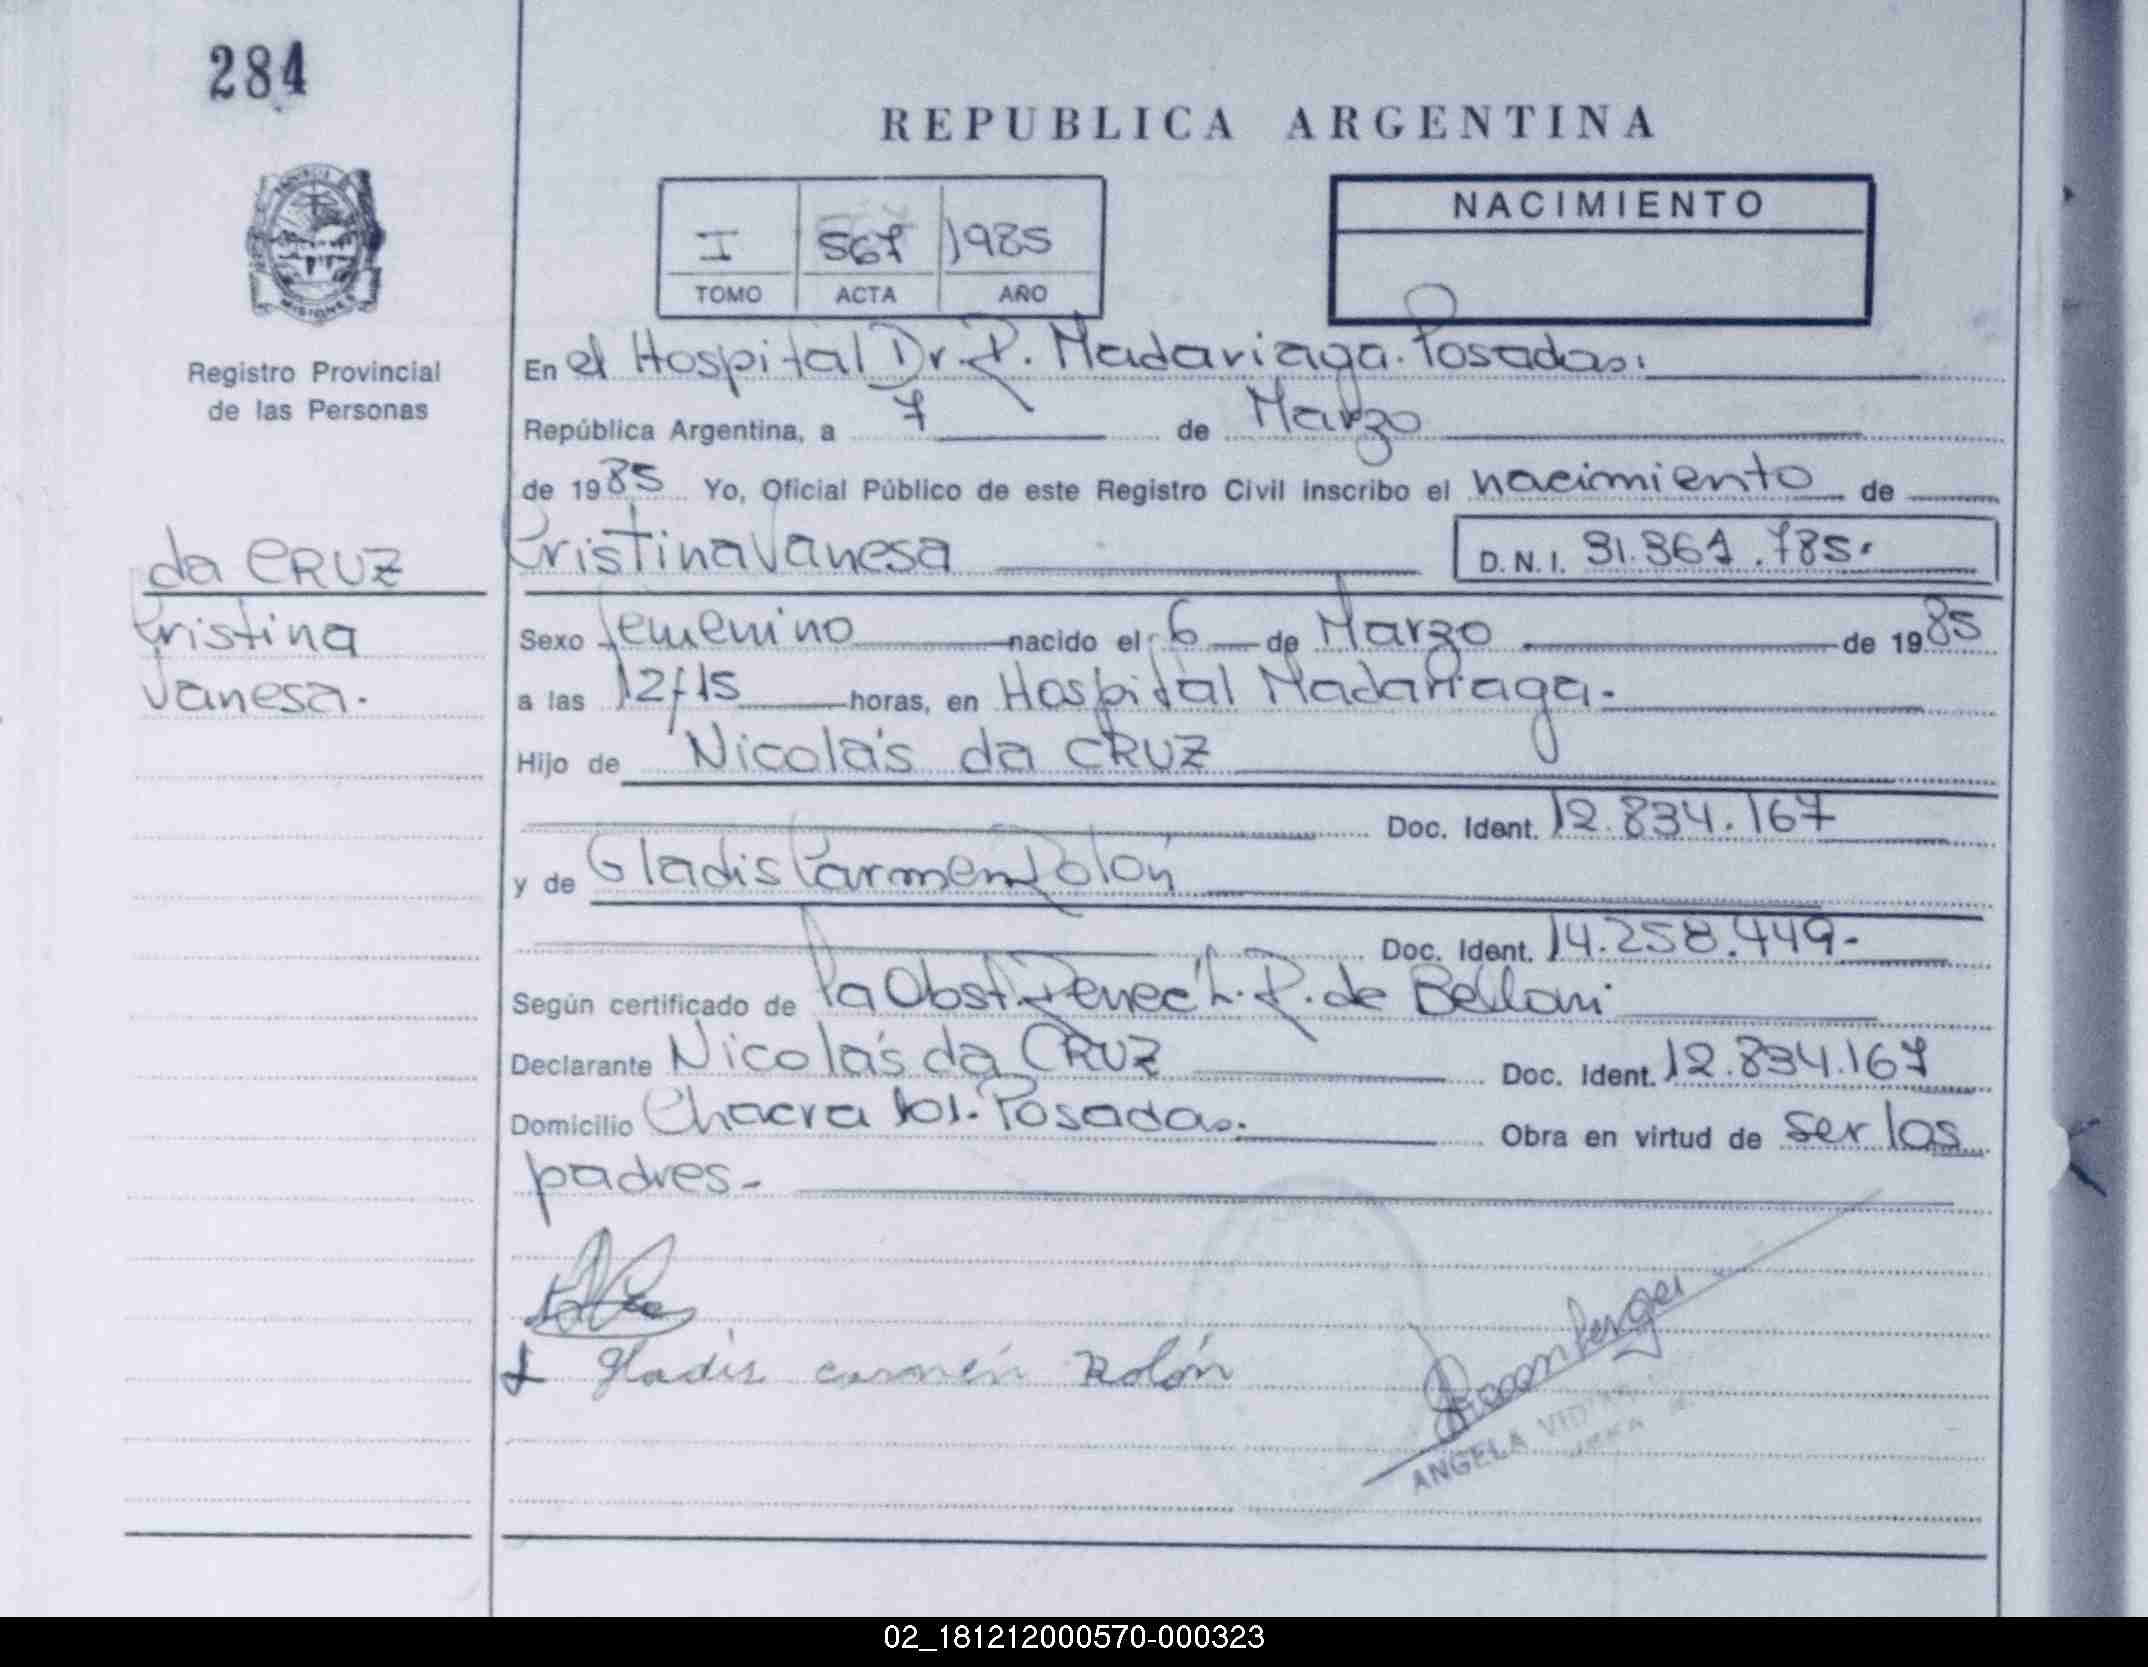 284
REPUBLICA ARGENTINA
I 567 1985
TOMO ACTA AÑO
NACIMIENTO
MISIONES
Registro Provincial
de las Personas
En el Hospital Dr. R. Madariaga. Posadas.
República Argentina, a 7 de Marzo
de 1985 Yo, Oficial Público de este Registro Civil inscribo el nacimiento de
Cristina Vanesa D.N.I. 31.361.785.
da CRUZ
Cristina
Vanesa.
Sexo femenino nacido el 6 de Marzo de 1985
a las 12/15 horas, en Hospital Madariaga.
Hijo de Nicolás da CRUZ
Doc. Ident. 12.834.167
y de Gladis Carmen Rolón
Doc. Ident. 14.258.449-
Según certificado de la Obst. R. de Belloni
Declarante Nicolás da CRUZ Doc. Ident. 12.834.167
Domicilio Chacra 101. Posadas. Obra en virtud de ser los
padres-
Gladis carmén Rolón
ANGELA
02_181212000570-000323